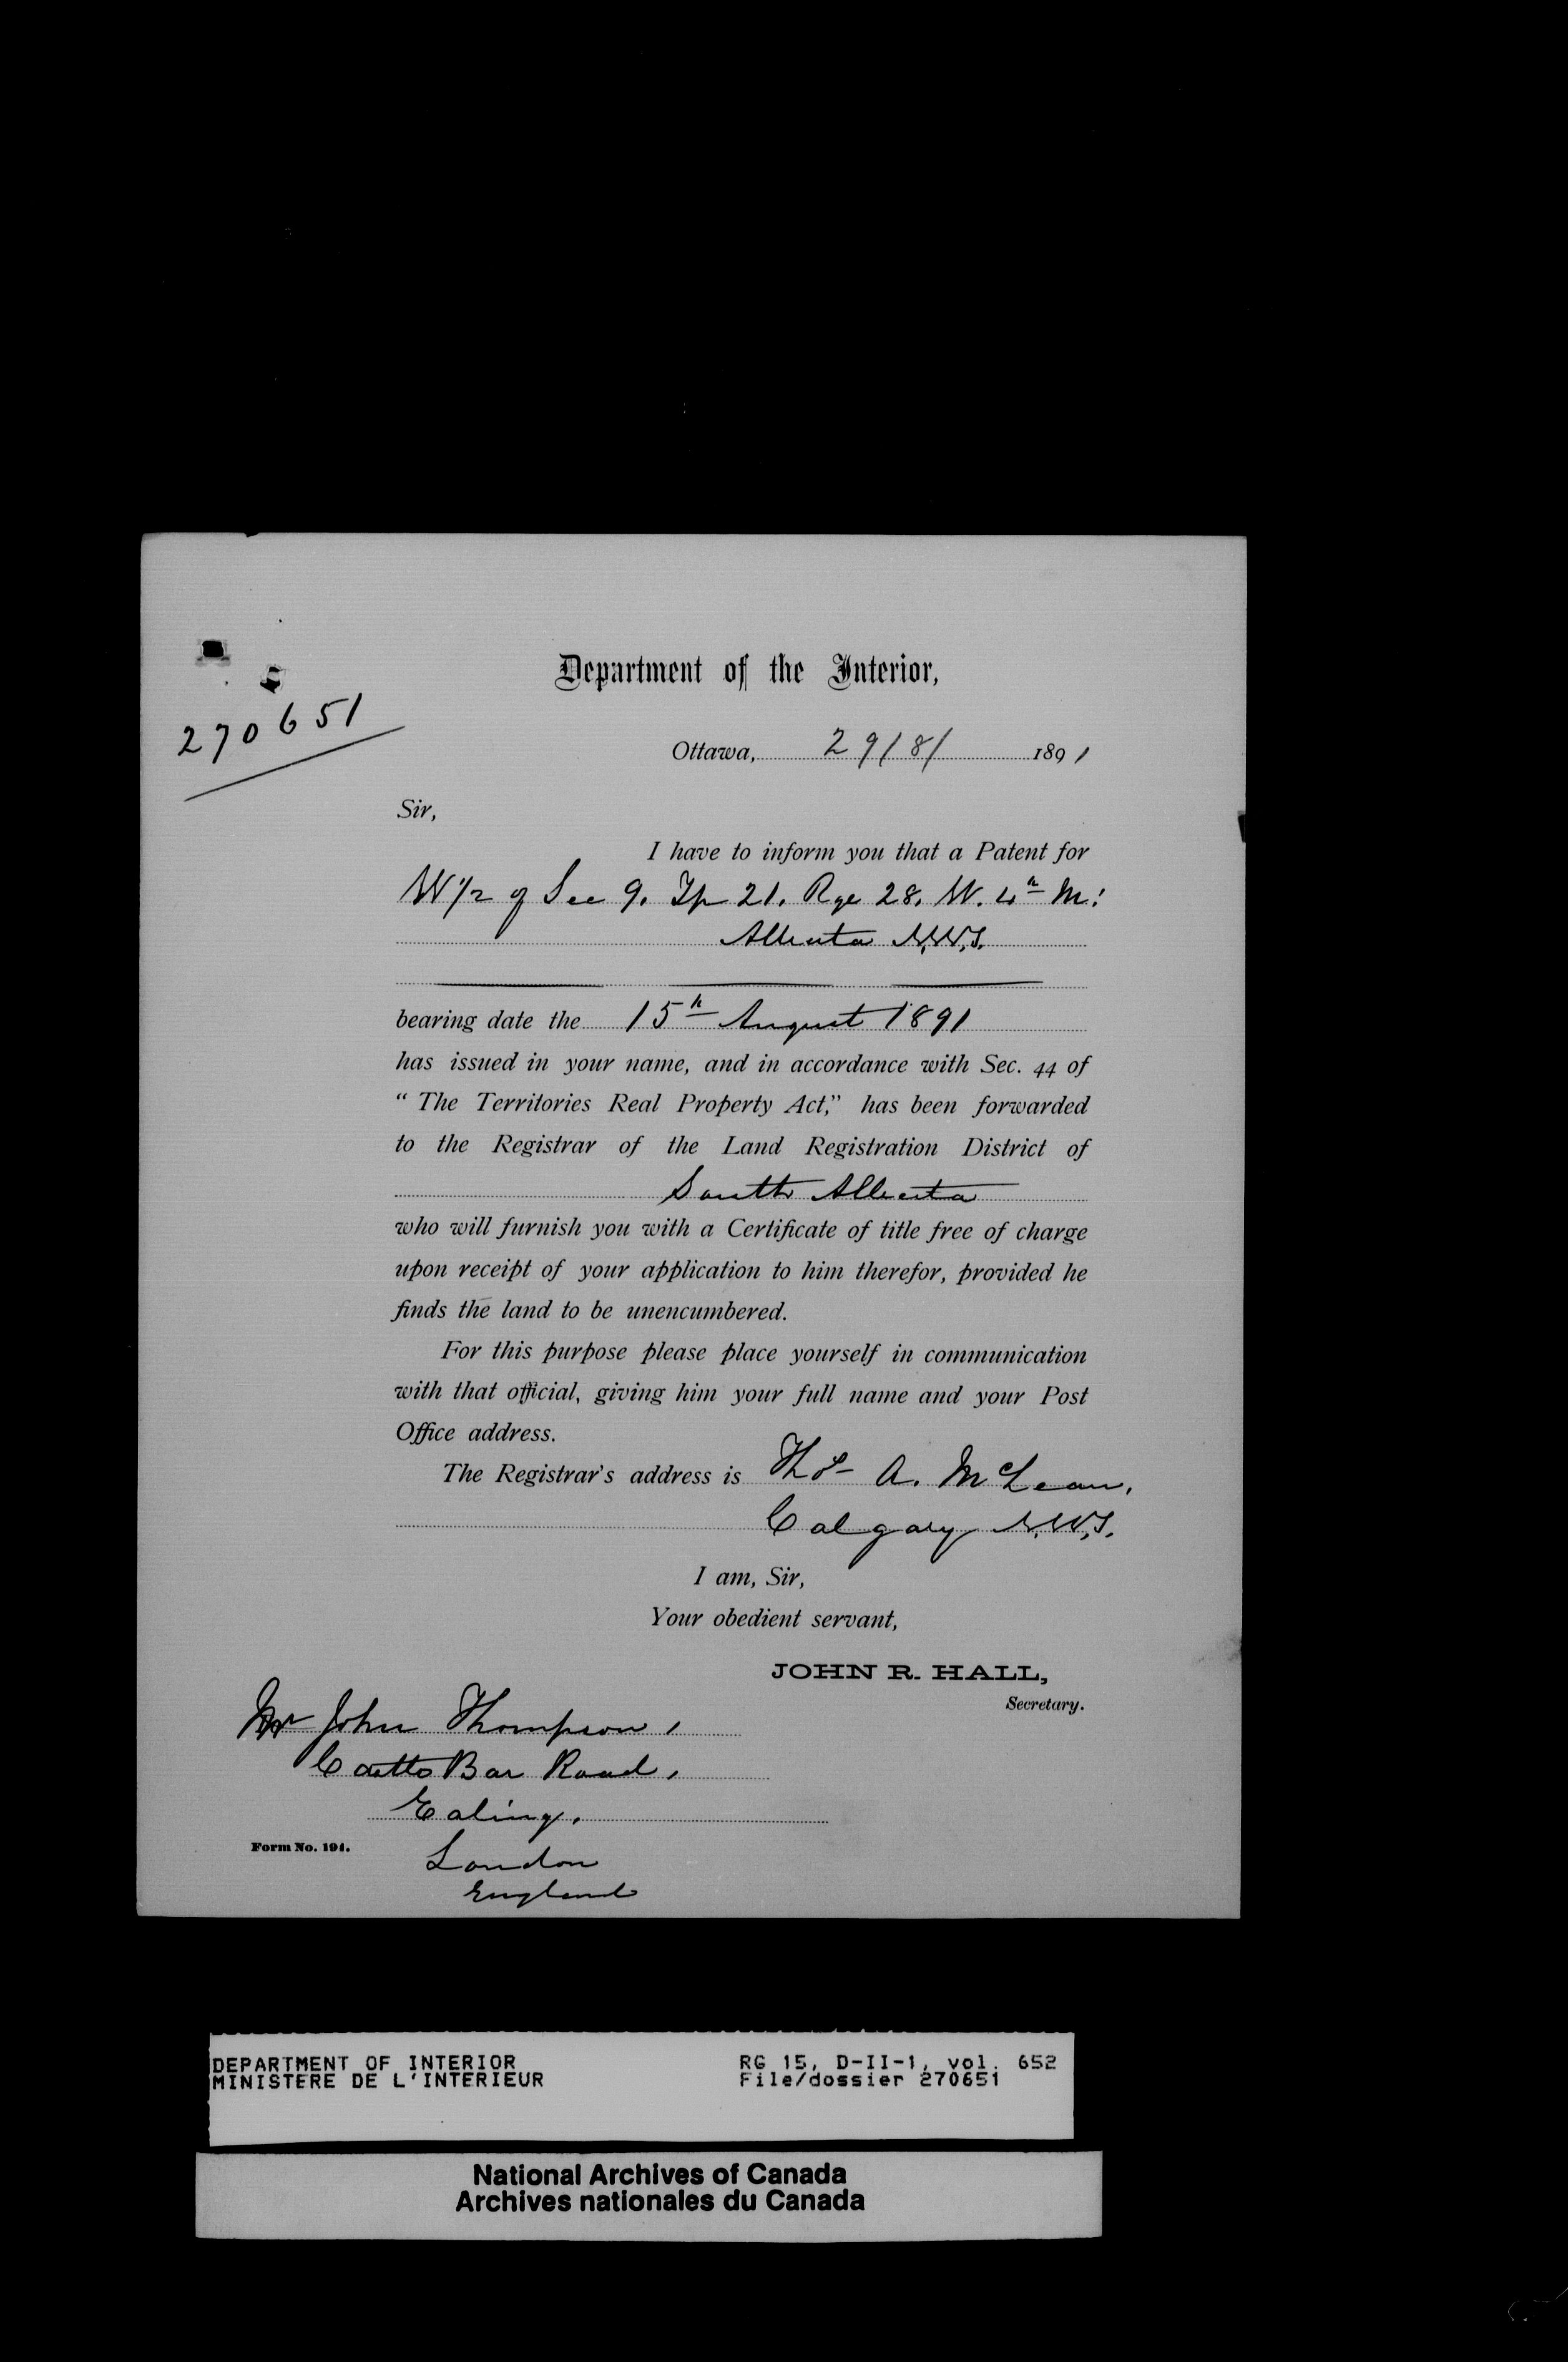 Department of the Interior,
270651
Ottawa, 29/8/ 1891
Sir,
I have to inform you that a Patent for
W 1/2 of Sec 9. Tp 21. Rge 28. W. 4th M:
Alberta N.W.T.
bearing date the 15th August 1891
has issued in your name, and in accordance with Sec. 44 of
“ The Territories Real Property Act,” has been forwarded
to the Registrar of the Land Registration District of
South Alberta
who will furnish you with a Certificate of title free of charge
upon receipt of your application to him therefor, provided he
finds the land to be unencumbered.
For this purpose please place yourself in communication
with that official, giving him your full name and your Post
Office address.
The Registrar's address is Thos A. McLean,
Calgary N.W.T.
I am, Sir,
Your obedient servant,
JOHN R. HALL,
Secretary.
Mr John Thompson,
Bar Road,
Ealing.
Form No. 194.
London
England
DEPARTMENT OF INTERIOR RG 15, D-II-1, vol. 652
MINISTERE DE L'INTERIEUR File/dossier 270651
National Archives of Canada
Archives nationales du Canada